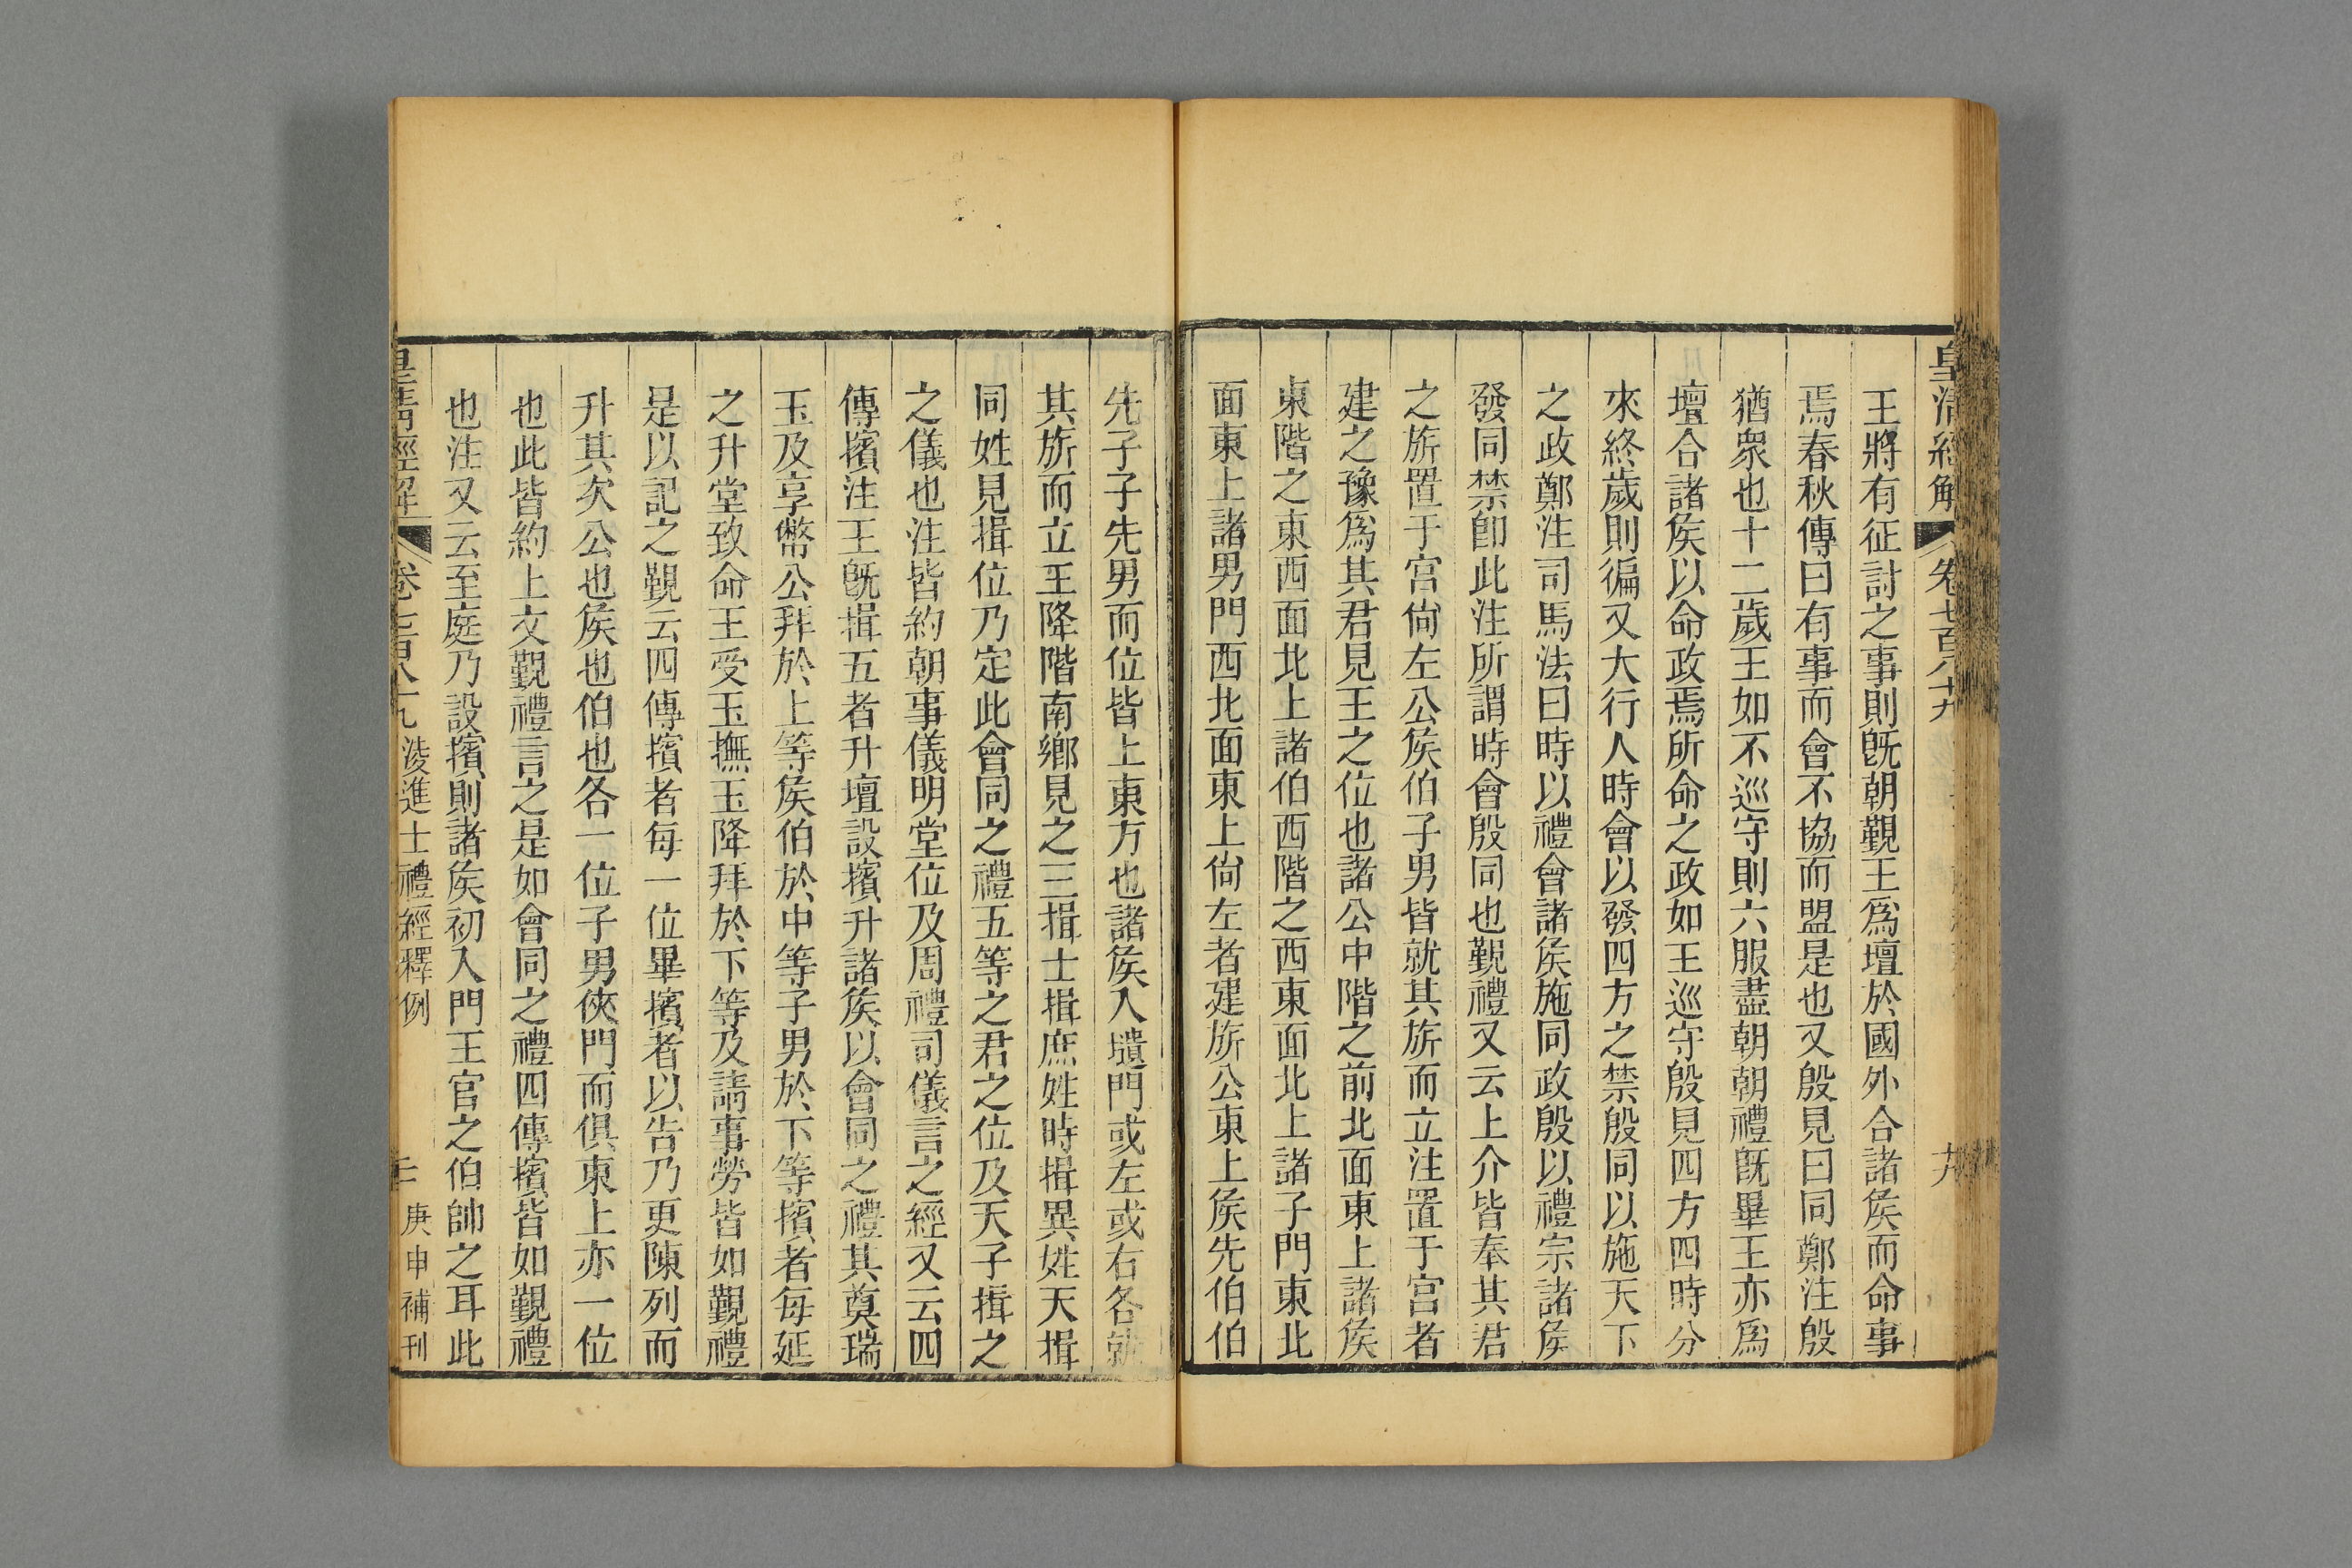 皇清經解 卷七百八十九 十九
王將有征討之事則旣朝覲王爲壇於國外合諸矦而命事
焉春秋傳曰有事而會不協而盟是也又殷見曰同鄭注殷
猶衆也十二歲王如不巡守則六服盡朝朝禮旣畢王亦爲
壇合諸矦以命政焉所命之政如王巡守殷見四方四時分
來終歲則徧又大行人時會以發四方之禁殷同以施天下
之政鄭注司馬法曰時以禮會諸矦施同政殷以禮宗諸矦
發同禁卽此注所謂時會殷同也覲禮又云上介皆奉其君
之旂置于宮尙左公矦伯子男皆就其旂而立注置于宮者
建之豫爲其君見王之位也諸公中階之前北面東上諸矦
東階之東西面北上諸伯西階之西東面北上諸子門東北
面東上諸男門西北面東上尙左者建旂公東上矦先伯伯
先子子先男而位皆上東方也諸矦入壝門或左或右各就
其旂而立王降階南鄉見之三揖土揖庶姓時揖異姓天揖
同姓見揖位乃定此會同之禮五等之君之位及天子揖之
之儀也注皆約朝事儀明堂位及周禮司儀言之經又云四
傳擯注王旣揖五者升壇設擯升諸矦以會同之禮其奠瑞
玉及享幣公拜於上等矦伯於中等子男於下等擯者每延
之升堂致命王受玉撫玉降拜於下等及請事勞皆如覲禮
是以記之覲云四傳擯者每一位畢擯者以告乃更陳列而
升其次公也矦也伯也各一位子男俠門而俱東上亦一位
也此皆約上文覲禮言之是如會同之禮四傳擯皆如覲禮
也注又云至庭乃設擯則諸矦初入門王官之伯帥之耳此
皇清經解 卷七百八十九 淩進士禮經釋例 二十 庚申補刊